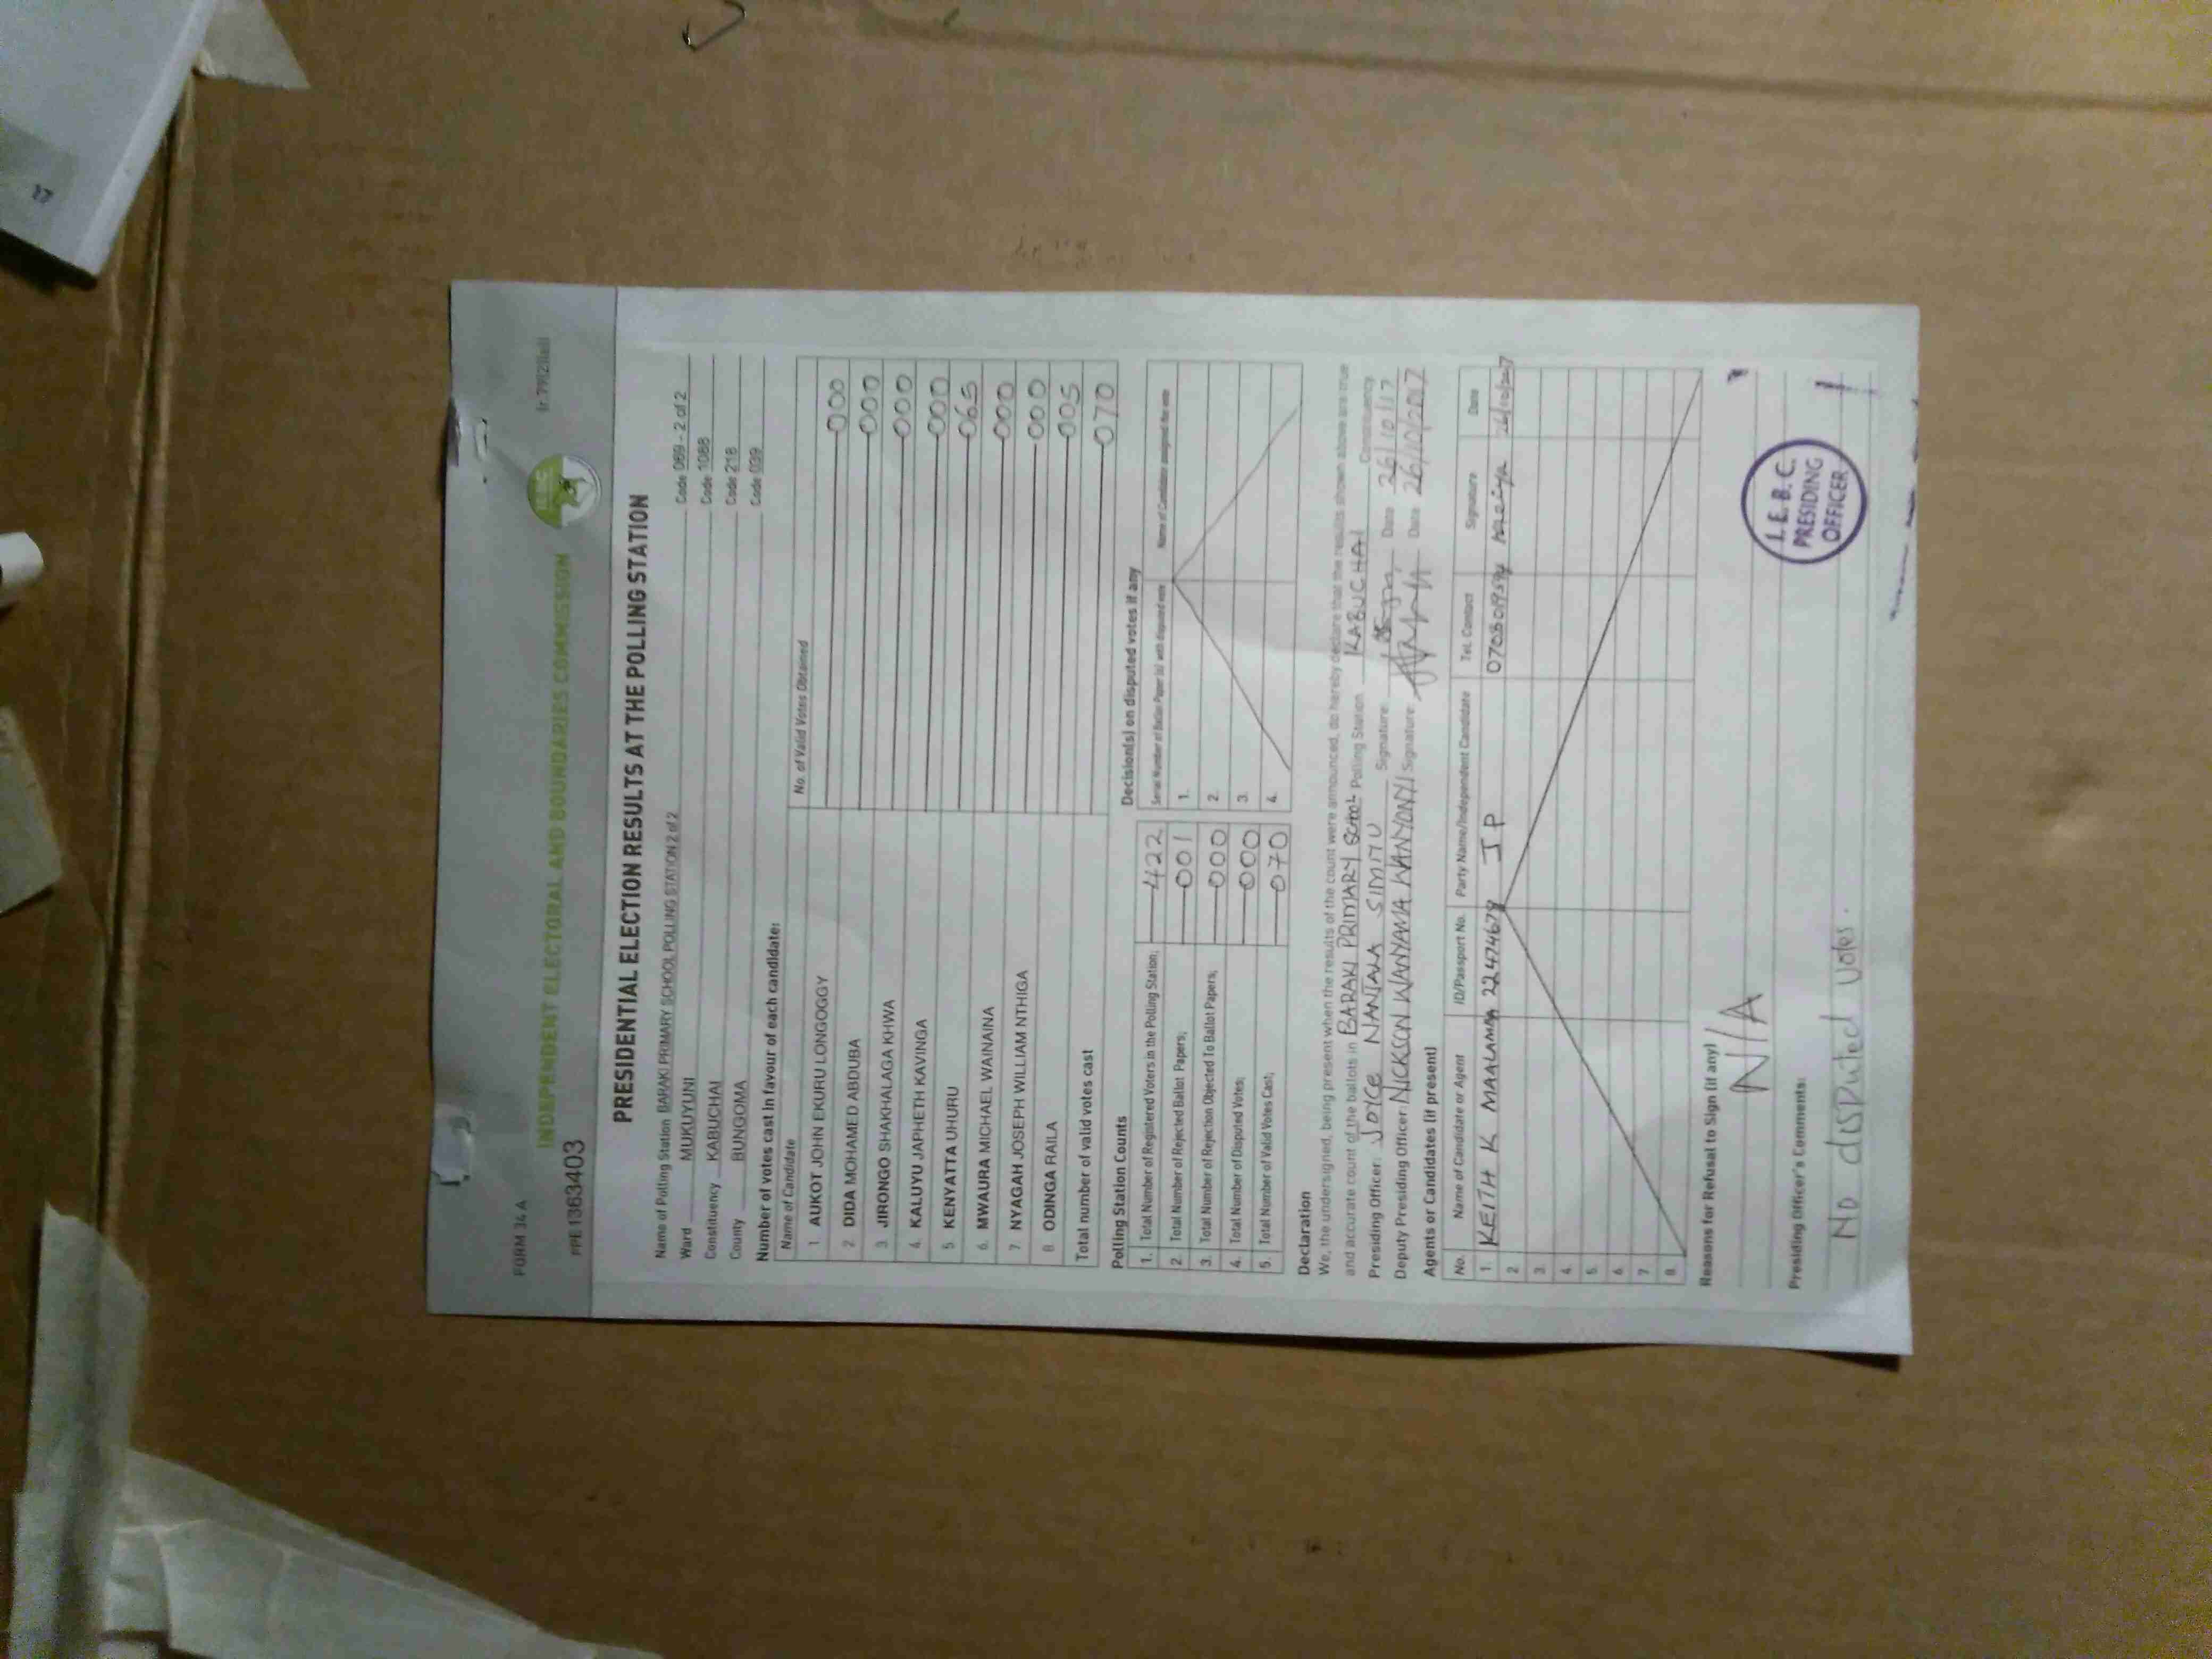 FORM 34 A
(r.79(2)(a))
INDEPENDENT ELECTORAL AND BOUNDARIES COMMISSION
PPE1363403
PRESIDENTIAL ELECTION RESULTS AT THE POLLING STATION
Name of Polling Station BARAKI PRIMARY SCHOOL POLLING STATION 2 of 2 Code 069 - 2 of 2
Ward MUKUYUNI Code 1088
Constituency KABUCHAI Code 218
County BUNGOMA Code 039
Number of votes cast in favour of each candidate:
Name of Candidate No. of Valid Votes Obtained
1 AUKOT JOHN EKURU LONGOGGY 000
2. DIDA MOHAMED ABDUBA 000
3. JIRONGO SHAKHALAGA KHWA 000
4. KALUYU JAPHETH KAVINGA 000
5 KENYATTA UHURU 065
6. MWAURA MICHAEL WAINAINA 000
7 NYAGAH JOSEPH WILLIAM NTHIGA 000
8 ODINGA RAILA 005
Total number of valid votes cast 070
Polling Station Counts
1. Total Number of Registered Voters in the Polling Station; 422
2. Total Number of Rejected Ballot Papers; 001
3. Total Number of Rejection Objected To Ballot Papers; 000
4. Total Number of Disputed Votes; 000
5. Total Number of Valid Votes Cast; 070
Decision(s) on disputed votes if any
Serial Number of Ballot Paper (s) with disputed vote Name of Candidate assigned the vote
1.
2.
3.
4.
Declaration
We, the undersigned, being present when the results of the count were announced, do hereby declare that the results shown above are true
and accurate count of the ballots in BARAKI PRIMARY School Polling Station KABUCHAI Constituency
Presiding Officer: JOYCE NANJALA SIMIYU Signature: Date 26/10/17
Deputy Presiding Officer: NICKSON WANYAMA WANYONYI Signature: Date 26/10/2017
Agents or Candidates (if present)
No. Name of Candidate or Agent ID/Passport No. Party Name/Independent Candidate Tel. Contact Signature Date
1. KEITH K MAALAMPA 22474678 JP 0708019594 26/10/2017
2
3.
4.
5.
6.
7.
8.
Reasons for Refusal to Sign (if any)
N/A
Presiding Officer's Comments:
No disputed votes.
I.E.B.C.
PRESIDING
OFFICER